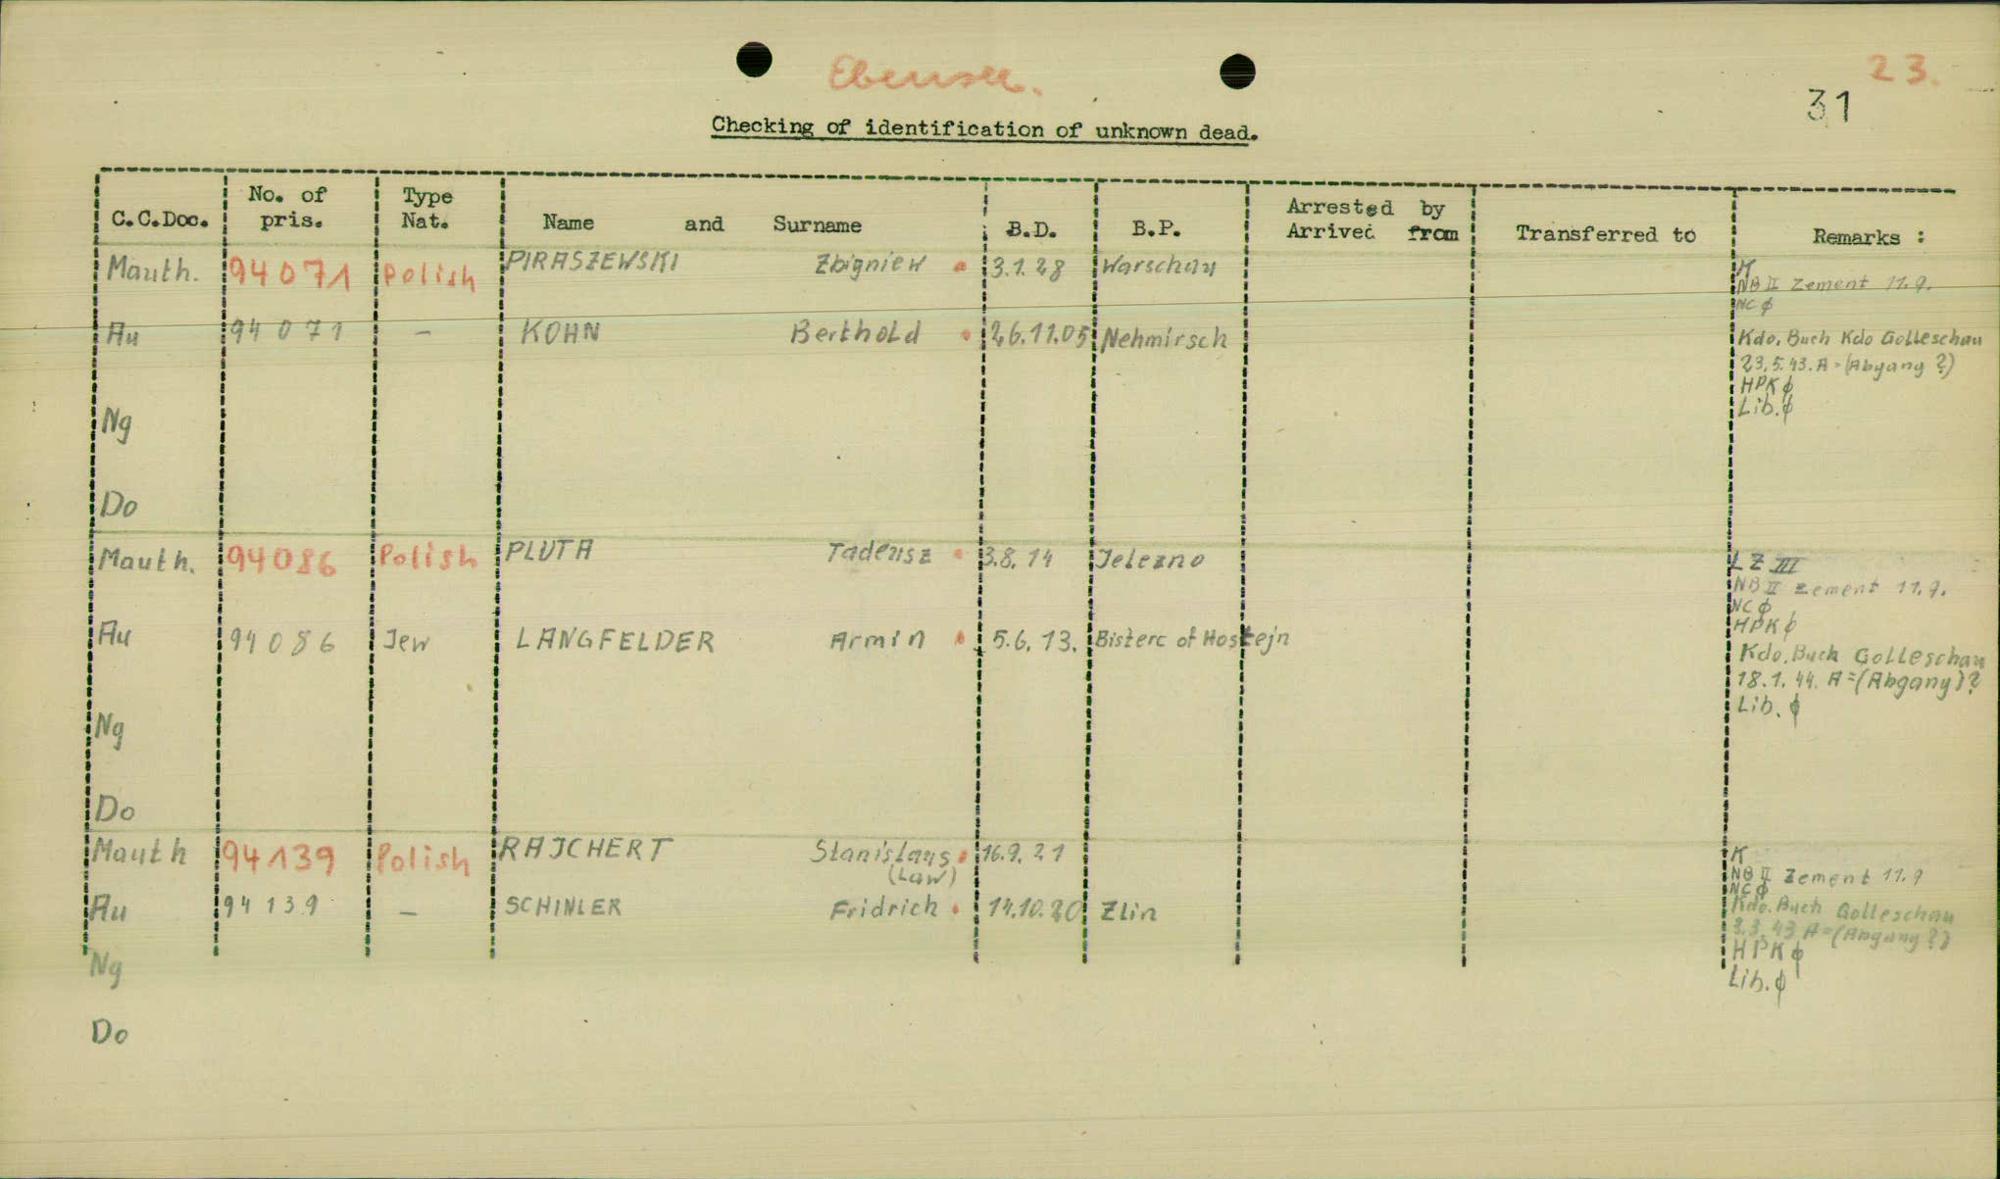 Ebensee.
23.
31
Checking of identification of unknown dead.
C.C.Doc. No. of pris. Type Nat. Name and Surname B.D. B.P. Arrested by Arrived from Transferred to Remarks :
Mauth. 94071 Polish PIRASZEWSKI Zbigniew 3.1.28 Warschau K
NB II Zement 11.9.
NC ϕ
Au 94071 - KOHN Berthold 26.11.05 Nehmirsch Kdo. Buch Kdo Golleschau
23.5.43. A = (Abgang ?)
HPK ϕ
Lib. ϕ
Ng
Do
Mauth. 94086 Polish PLUTA Tadeusz 3.8.14 Jelezno LZ III
NB II Zement 11.9.
NC ϕ
HPK ϕ
Au 94086 Jew LANGFELDER Armin 5.6.13. Bisterc of Hostejn Kdo. Buch Golleschau
18.1.44. A = (Abgang)?
Lib. ϕ
Ng
Do
Mauth 94139 Polish RAJCHERT Stanislaus 16.9.21 K
(Law)
NB II Zement 11.9
NC ϕ
Au 94139 - SCHINLER Fridrich 14.10.20 Zlin Kdo. Buch Golleschau
3.3.43 A = (Abgang ?)
HPK ϕ
Lib. ϕ
Ng
Do